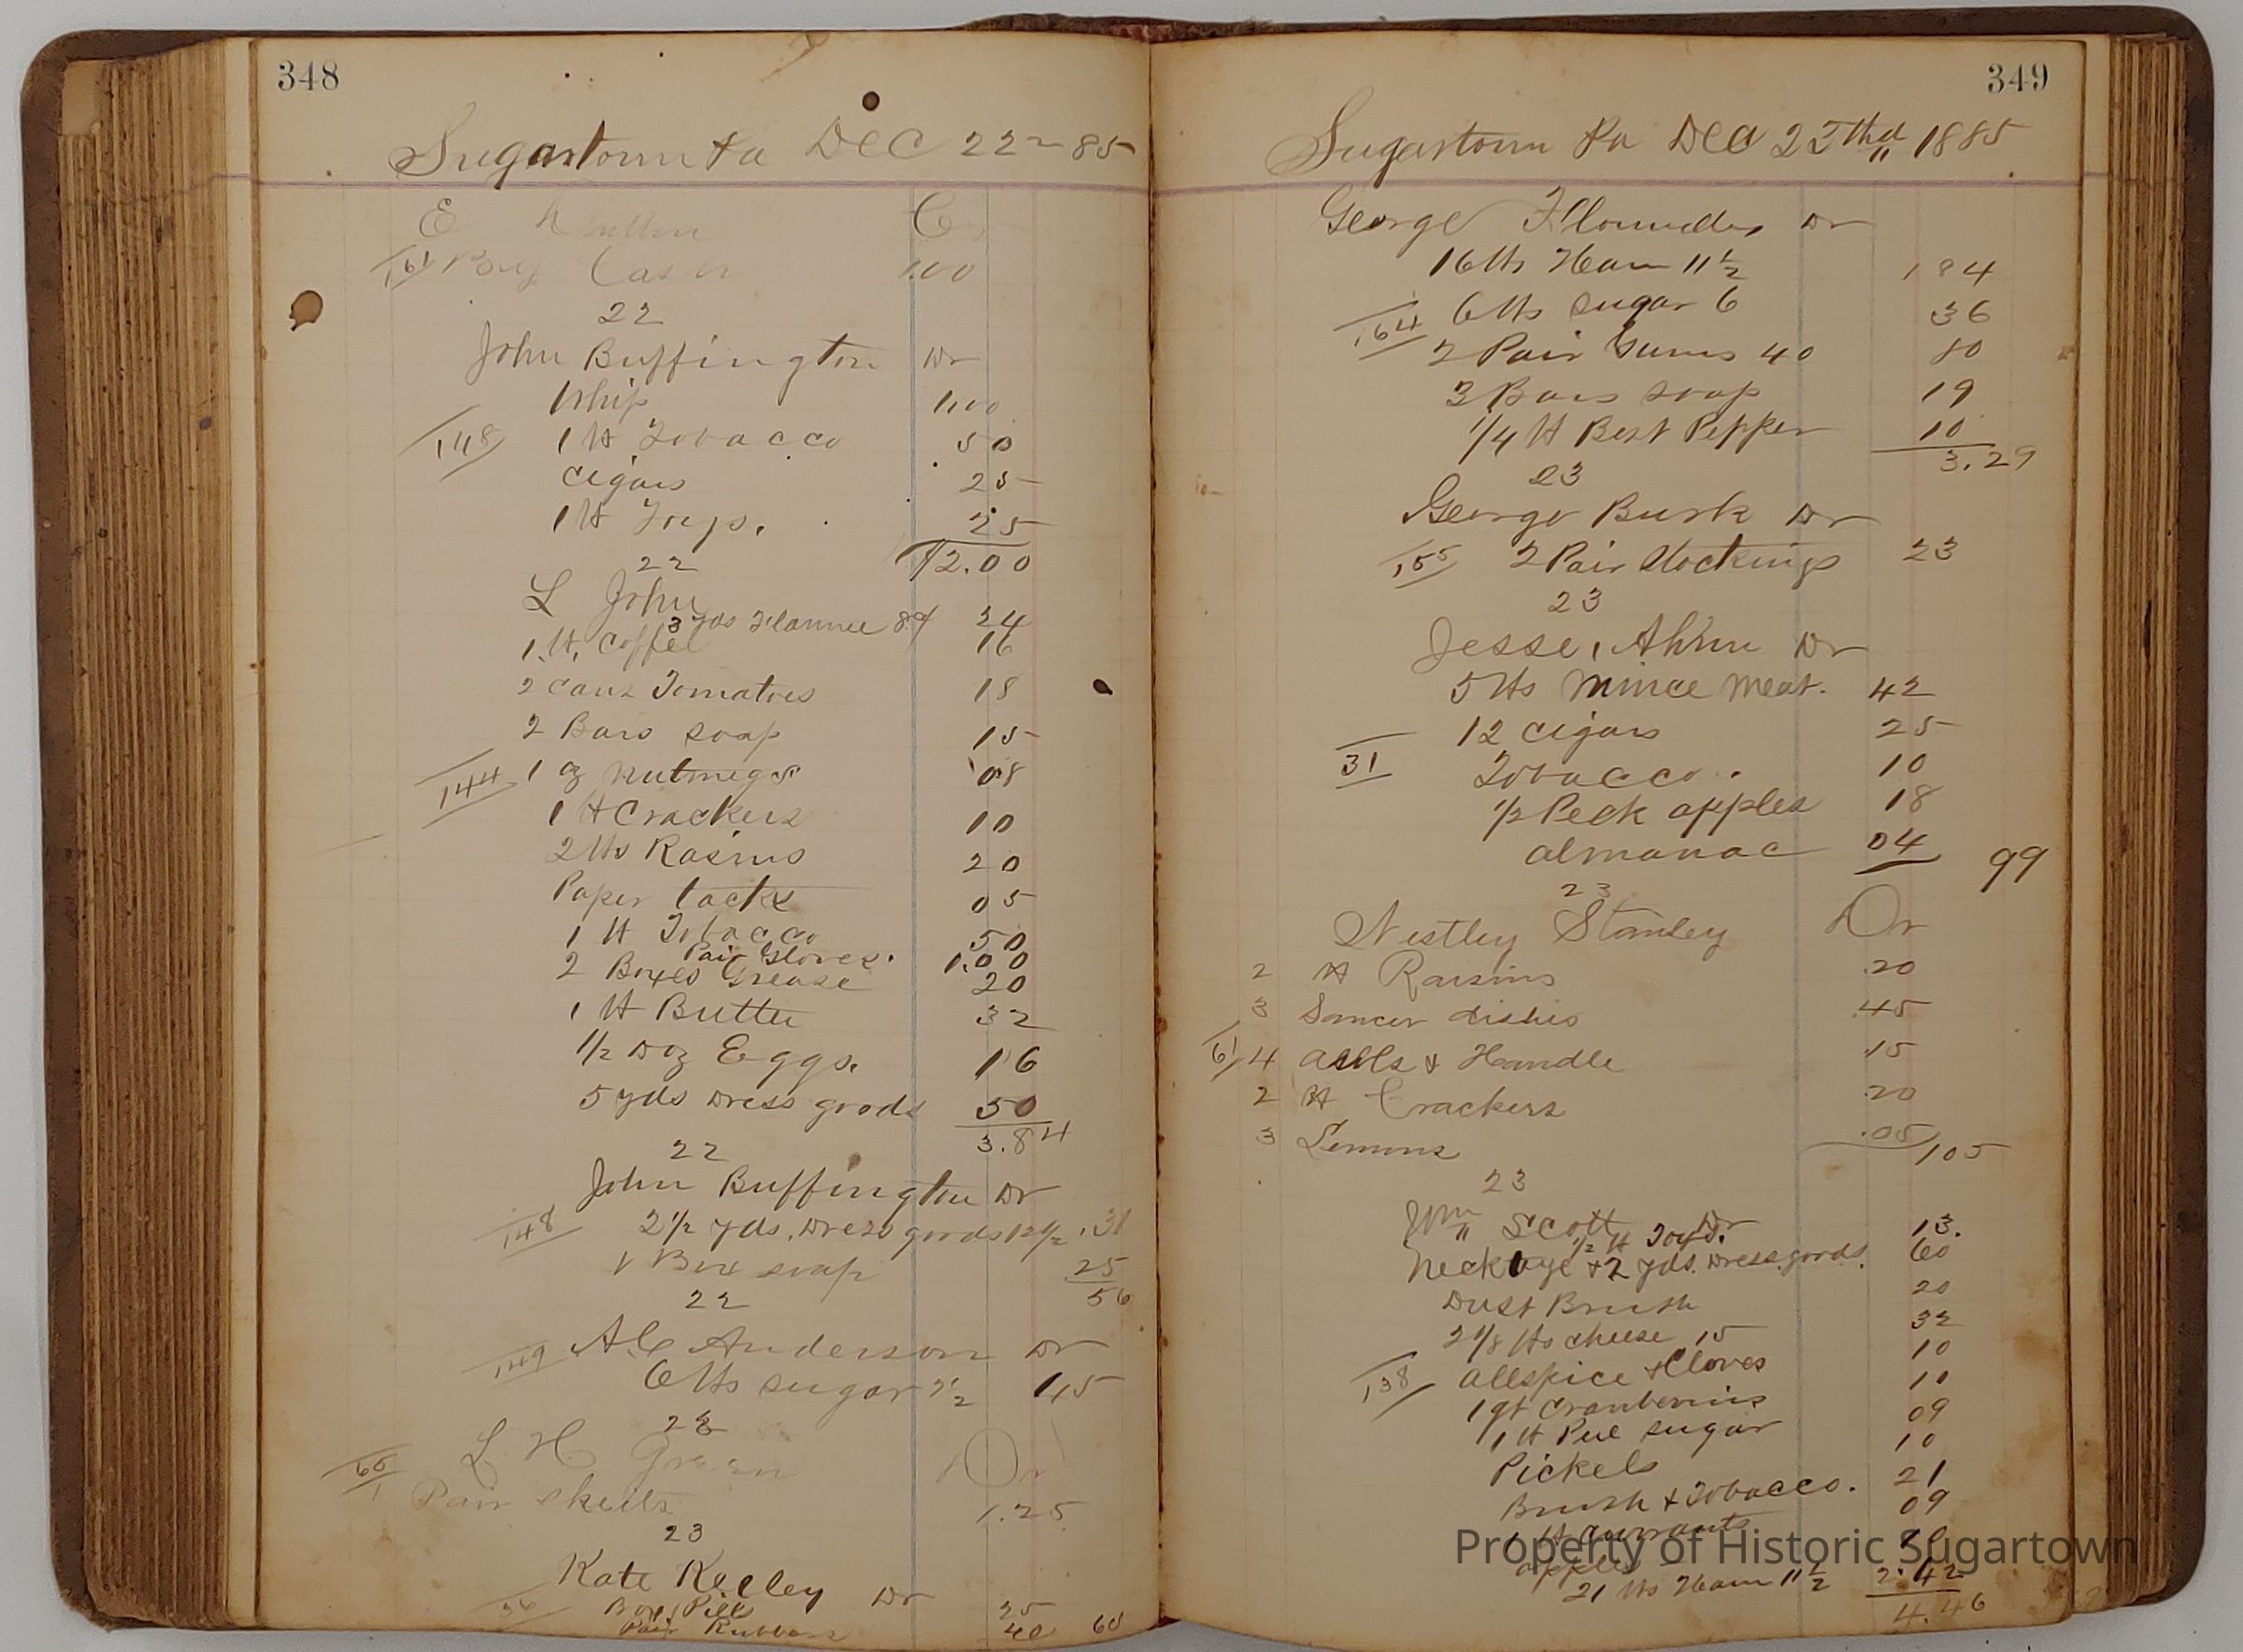 348
Sugartown Pa Dec 22nd 85
E Cr
161 By Cash 1.00
22
John Buffington Dr
Whip 1.00
148 1 lb Tobacco 50
Cigars 25
1 lb 25
2.00
22
L John
3 yds Flannel 8 24
1 lb. Coffee 16
2 cans Tomatoes 18
2 Bars soap 15
144 1 oz Nutmegs 08
1 lb Crackers 10
2 lbs Rasins 20
Paper tacks 05
1 lb Tobacco 50
Pair Gloves. 1.00
2 Boxes Grease 20
1 lb Butter 32
1/2 Doz Eggs. 16
5 yds Dress goods 50
3.84
22
John Buffington Dr
148 2 1/2 yds. Dress goods 12 1/2 .31
1 Box soap 25
56
22
149 A C Anderson Dr
6 lbs sugar 7 1/2 45
22
L. H. Green Dr
65 1 Pair skeits 1.25
23
Kate Keeley Dr
36 Box Pills 25
Pair Rubbers 40 65
349
Sugartown Pa Dec 23rd 1885
George Flounders Dr
16 lbs Ham 11 1/2 1 84
6 lbs sugar 6 36
164 2 Pair Gums 40 80
3 Bars soap 19
1/4 lb Best Pepper 10
3.29
23
George Burk Dr
155 2 Pair Stockings 23
23
Jesse, Dr
5 lbs Mince Meat. 42
12 cigars 25
31 Tobacco. 10
1/2 Peck apples 18
almanac 04 99
23
Nestley Stanley Dr
2 lb Raisins .20
3 Sancer dishes .45
61 4 alls & Handle .15
2 lb Crackers .20
3 Lemons .05 105
23
Wm Scott Dr
1/2 lb 13.
Necktye & 2 yds. Dress goods. 60
Dust Brush 20
2 1/8 lbs cheese 15 32
138 allspice & Cloves 10
1 qt Cranberries 10
1 lb Pul sugar 09
Pickels 10
Brush & Tobacco. 21
1 lb currants 09
apples 10
21 lbs Ham 11 1/2 2.42
4.46
Property of Historic Sugartown